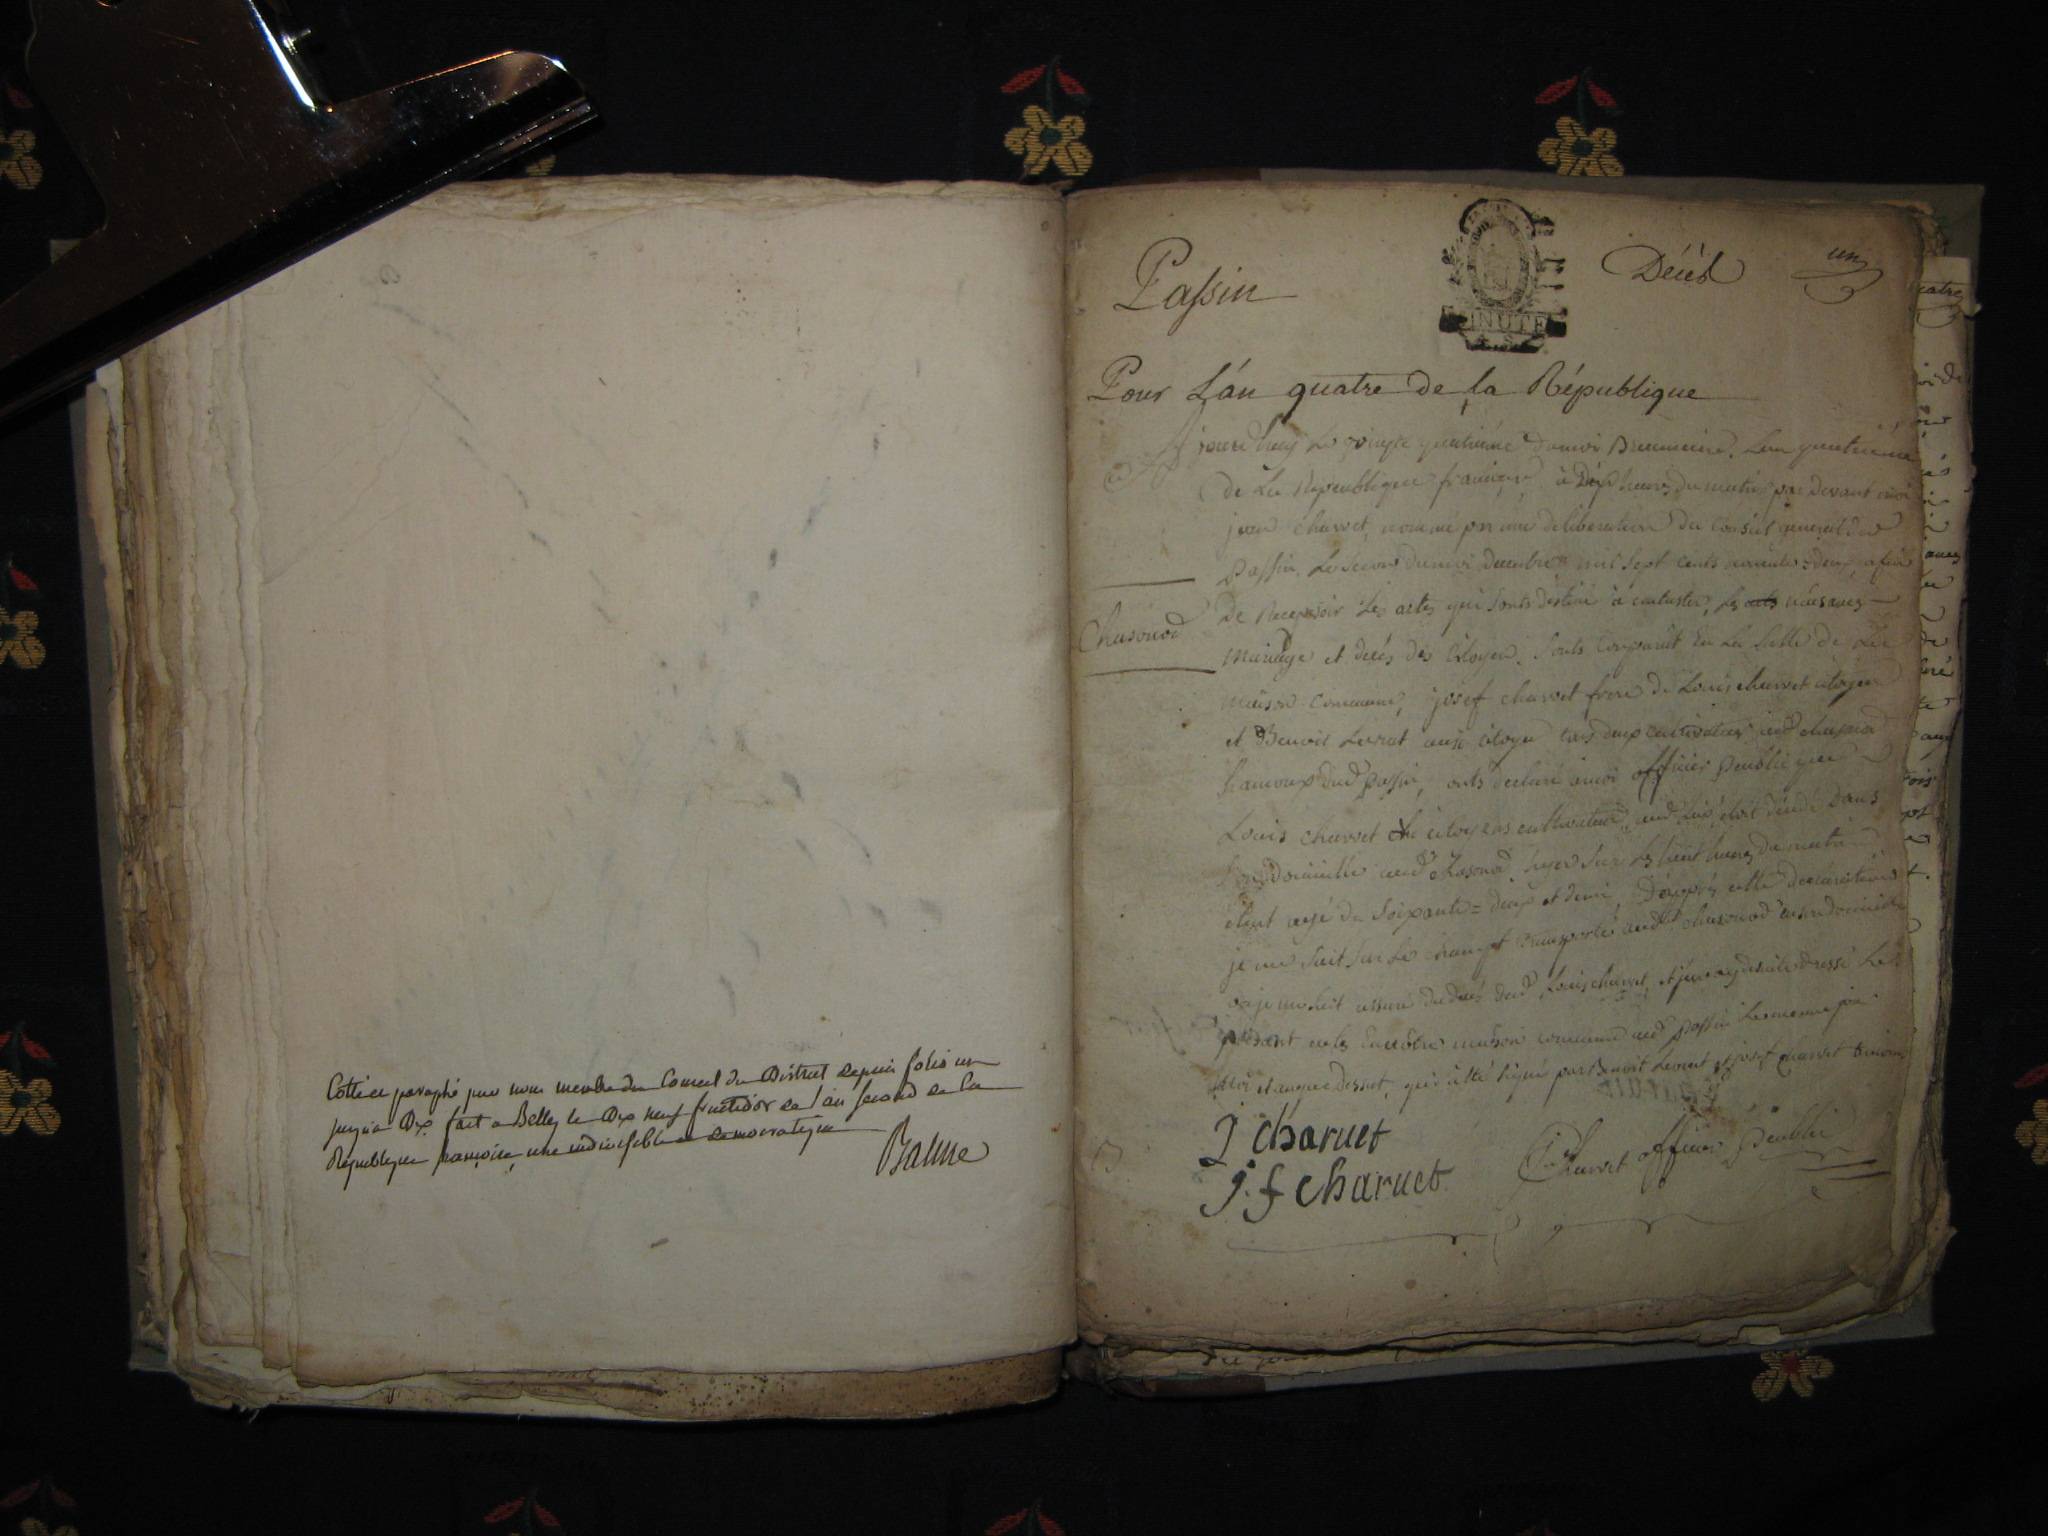 Cotté et paraphé par nous membre du Conseil du District depuis folio un
jusqu'a Dix. fait a Belley le Dix neuf fructidor de l'an second de la
République francoise, une indivisible et democratique
Balme
Passin
MINUTE
Décés
un
Pour L'án quatre de la République
jourd'huy Le vingte quatrieme du moi Brumaire. L'an quatrieme
de La Republique francaise, à Dix heures du matin par devant moi
jean charvet, nommé par une deliberation du Conseil general de
Passin. Le du moi decembre mil sept cents nonante = deux, afin
Chasonod
De Recepvoir Les actes qui sonts destiné à constater, Les acts naissances
mariage et décés des Citoyen. sonts Comparut En La salle de La
maison Commune, josef charvet frere de Louis charvet citoyen
et Benoit aussi citoyen tous deux cultivateur aud chasonod
hameaux dud Passin, onts declaré à moi officier publique
Louis charvet citoyens cultivateur, étoit décédé Dans
Son domicille aud Chasonod, hyer sur Les huit heures du matin
étant agé de Soixante = deux et demi, D'après cette declaration
je me suit sur Le champt transporté aud chasonod en son domicille
ou je me suit assuré du décés dud Louis charvet, et j'en ay de suite dressé Le
présent acte En nôtre maison commune aud Passin Les meme jour
moi et an que dessut, qui a été signé par Benoit et josef charvet
J charuet
j. f charuet
Charvet officier Public